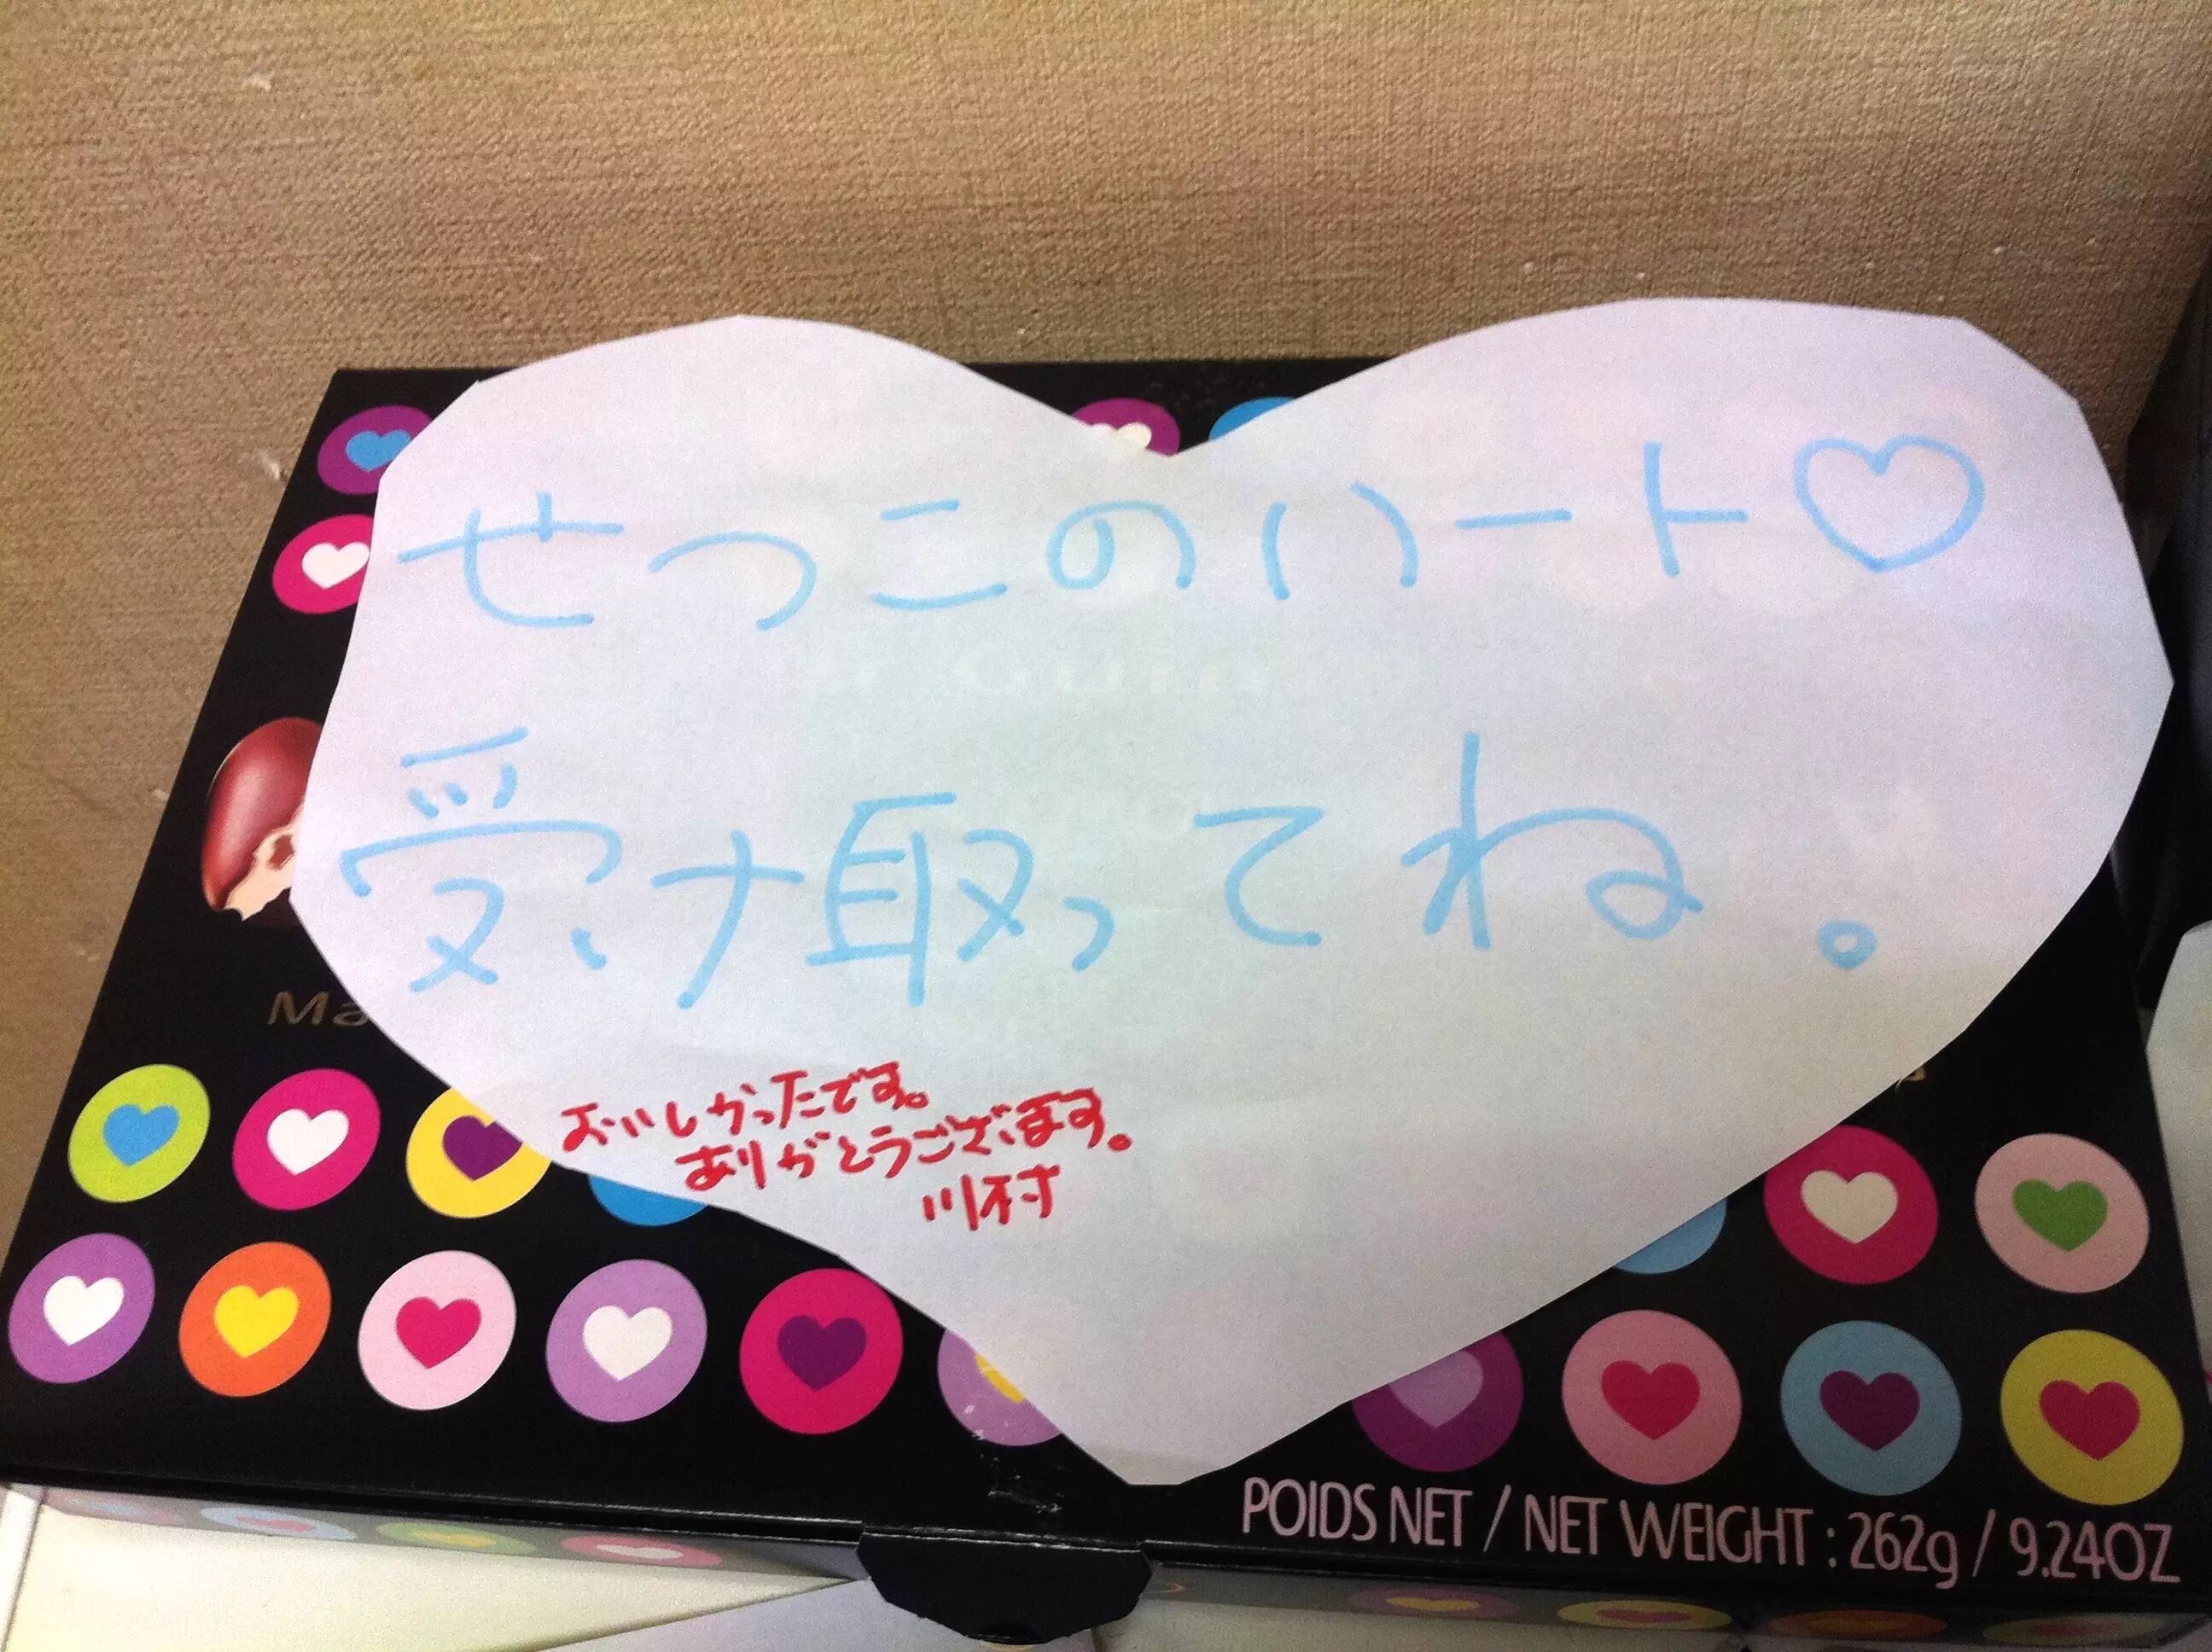 せっこのハート♡
受け取ってね。
おいしかったです。
ありがとうございます。
川村
Ma
POIDS NET / NET WEIGHT : 262g / 9.24OZ